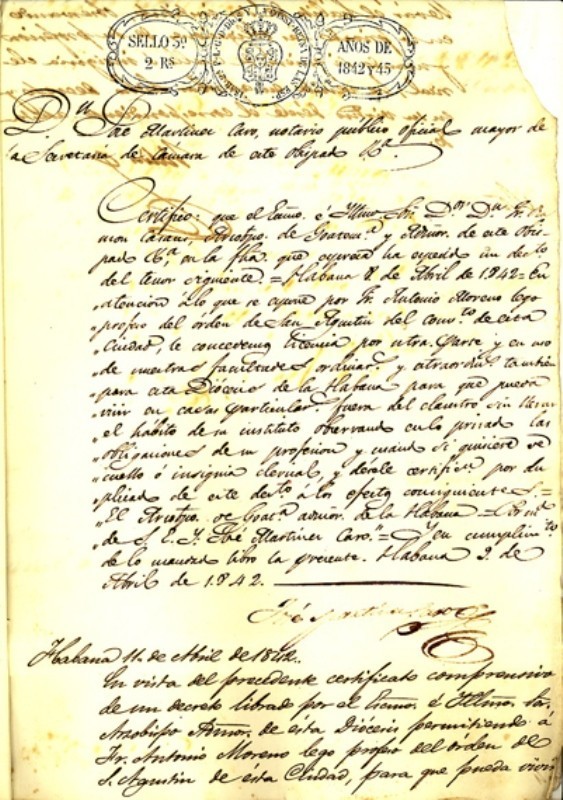 SELLO 5º
2 Rs
AÑOS DE
1842 Y 43
Dn José Martinez Caro, notario público oficial mayor de
la Secretaría de Cámara de este Obispad
Certifico: que el Exmo. é Illmo. Sr. Dor. Dn. Fr. Ra
mon Casaus, Arzobpo. de Goatema. y Admor. de este Obis-
pado en la fha. que espresa ha expedido un decto.
del tenor siguiente. = Habana 8 de Abril de 1842 = En
"atencion á lo que se espone por Fr. Antonio Moreno lego
"profeso del órden de San Agustin del convto. de esta
"Ciudad, le concedemos licencia por ntra. parte y en uso
"de nuestras facultades ordinar. y estraordin. tambien
"para esta Diócesis de la Habana para que pueda
"vivir en casas particular. fuera del claustro sin llevar
"el hábito de su instituto observando en lo privad. las
"obligaciones de su profesion y usando si quisiere de
"cuello ó insignia clerical, y désele certific. por du
"plicad. de este decto. á los efectos consiguientes. =
"El Arzobpo. de Goata. admor. de la Habana = Por md.
"de S. E. I. José Martinez Caro." = Y en cumplimto.
de lo mandad. libro la presente. Habana 9. de
Abril de 1842.
José Martinez Caro
Habana 11. de Abril de 1842.
En vista del precedente certificado comprensivo
de un decreto librado por el Exmo. é Illmo. Sor.
Arzobispo Admor. de ésta Diócesis permitiendo á
Fr. Antonio Moreno lego profeso del órden de
S. Agustin de ésta Ciudad, para que pueda vivir